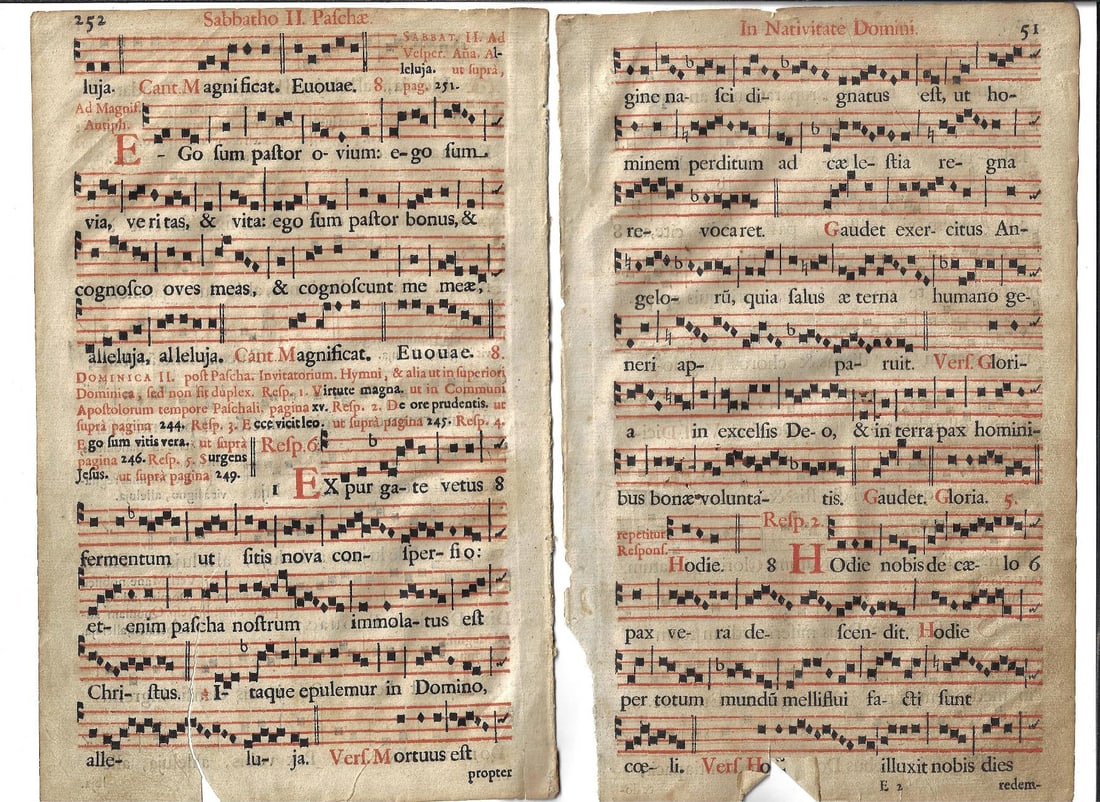 252
Sabbatho II. Paſchæ.
SABBAT. II. Ad
Veſper. Aña. Al-
leluja. ut ſuprà,
luja. Cant. Magnificat. Euouae. 8. pag. 251.
Ad Magnif.
Antiph.
E- Go ſum paſtor o- vium: e- go ſum
via, veritas, & vita: ego ſum paſtor bonus, &
cognoſco oves meas, & cognoſcunt me meæ,
alleluja, alleluja. Cant. Magnificat. Euouae. 8.
DOMINICA II. poſt Paſcha. Invitatorium. Hymni, & alia ut in ſuperiori
Dominica, ſed non ſit duplex. Reſp. 1. Virtute magna. ut in Communi
Apoſtolorum tempore Paſchali, pagina xv. Reſp. 2. De ore prudentis. ut
ſuprà pagina 244. Reſp. 3. Ecce vicit leo. ut ſuprà pagina 245. Reſp. 4.
Ego ſum vitis vera. ut ſuprà
pagina 246. Reſp. 5. Surgens
Jeſus. ut ſuprà pagina 249.
Reſp. 6.
1 EX pur ga- te vetus 8
fermentum ut ſitis nova con- ſper- ſio:
et- enim paſcha noſtrum immola- tus eſt
Chri- ſtus. I- taque epulemur in Domino,
alle- lu- ja. Verſ. Mortuus eſt
propter
In Nativitate Domini. 51
gine na- ſci di- gnatus eſt, ut ho-
minem perditum ad cæ le- ſtia re- gna
re- vocaret. Gaudet exer- citus An-
gelo- rũ, quia ſalus æ terna humano ge-
neri ap- pa- ruit. Verſ. Glori-
a in excelſis De- o, & in terra pax homini-
bus bonæ volunta- tis. Gaudet. Gloria. 5.
repetitur
Reſponſ.
Hodie. 8
Reſp. 2.
HOdie nobis de cæ- lo 6
pax ve- ra de- ſcen- dit. Hodie
per totum mundũ melliflui fa- cti ſunt
cœ- li. Verſ. illuxit nobis dies
E 2 redem-